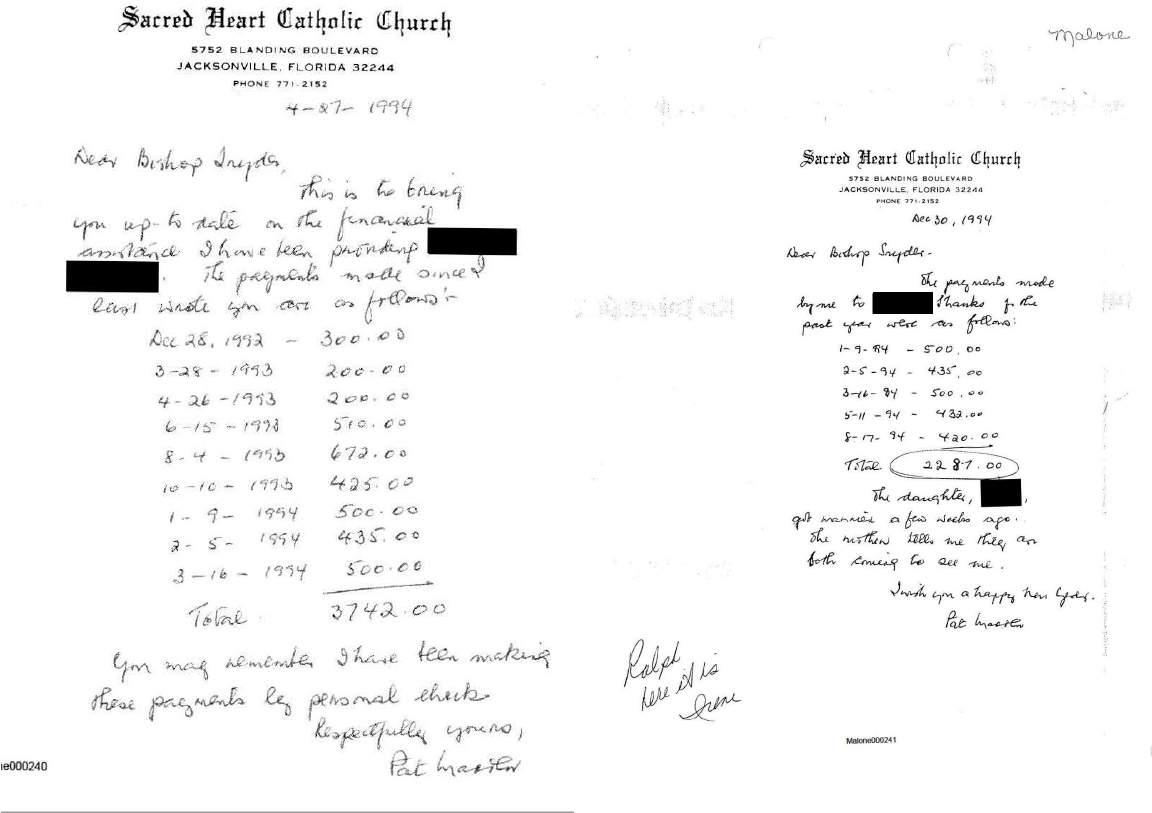 Sacred Heart Catholic Church
5752 BLANDING BOULEVARD
JACKSONVILLE, FLORIDA 32244
PHONE 771-2152
4-27-1994
Dear Bishop Snyder,
This is to bring
you up-to date on the financial
assistance I have been providing
. The payments made since I
last wrote you are as follows:-
Dec 28, 1992 - 300.00
3-28-1993 200.00
4-26-1993 200.00
6-15-1993 510.00
8-4-1993 672.00
10-10-1993 425.00
1-9-1994 500.00
2-5-1994 435.00
3-16-1994 500.00
Total 3742.00
You may remember I have been making
these payments by personal check
Respectfully yours,
Pat
ne000240
Malone
Sacred Heart Catholic Church
5752 BLANDING BOULEVARD
JACKSONVILLE, FLORIDA 32244
PHONE 771-2152
Dec 30, 1994
Dear Bishop Snyder-
The payments made
by me to Thanks for the
past year were as follows:
1-9-94 - 500.00
2-5-94 - 435.00
3-16-94 - 500.00
5-11-94 - 432.00
8-17-94 - 420.00
Total 2287.00
The daughter, ,
got married a few weeks ago.
The mother tells me they are
both coming to see me.
I wish you a happy New Year.
Pat
Ralph
here it is
Irene
Malone000241